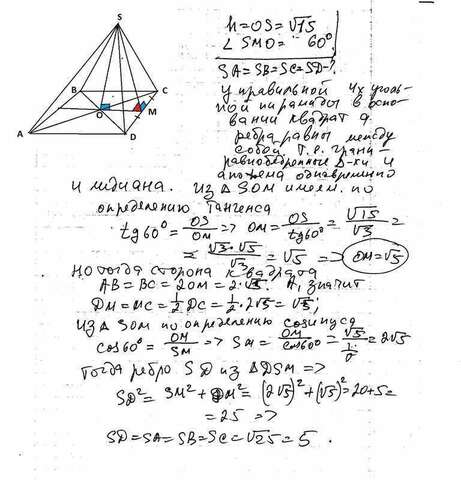 S
B
C
O
M
A
D
h = OS = √15
∠ SMO = 60°
SA = SB = SC = SD - ?
у правильной 4х уголь-
ной пирамиды в осно-
вании квадрат а
ребра равны между
собой т.е. грани -
равнобедренные Δ-ки и
апофема одновременно
и медиана. Из Δ SOM имеем по
определению тангенса
tg60° = OS/OM => OM = OS/tg60° = √15/√3 =
= √3·√5/√3 = √5 => OM = √5
Но тогда сторона квадрата
AB = BC = 2OM = 2·√5. А, значит
DM = MC = 1/2 DC = 1/2·2√5 = √5;
Из Δ SOM по определению косинуса
cos60° = OM/SM => SM = OM/cos60° = √5/ = 2√5
Тогда ребро SD из ΔDSM =>
SD² = SM² + DM² = (2√5)² + (√5)² = 20+5 =
= 25 =>
SD = SA = SB = SC = √25 = 5.